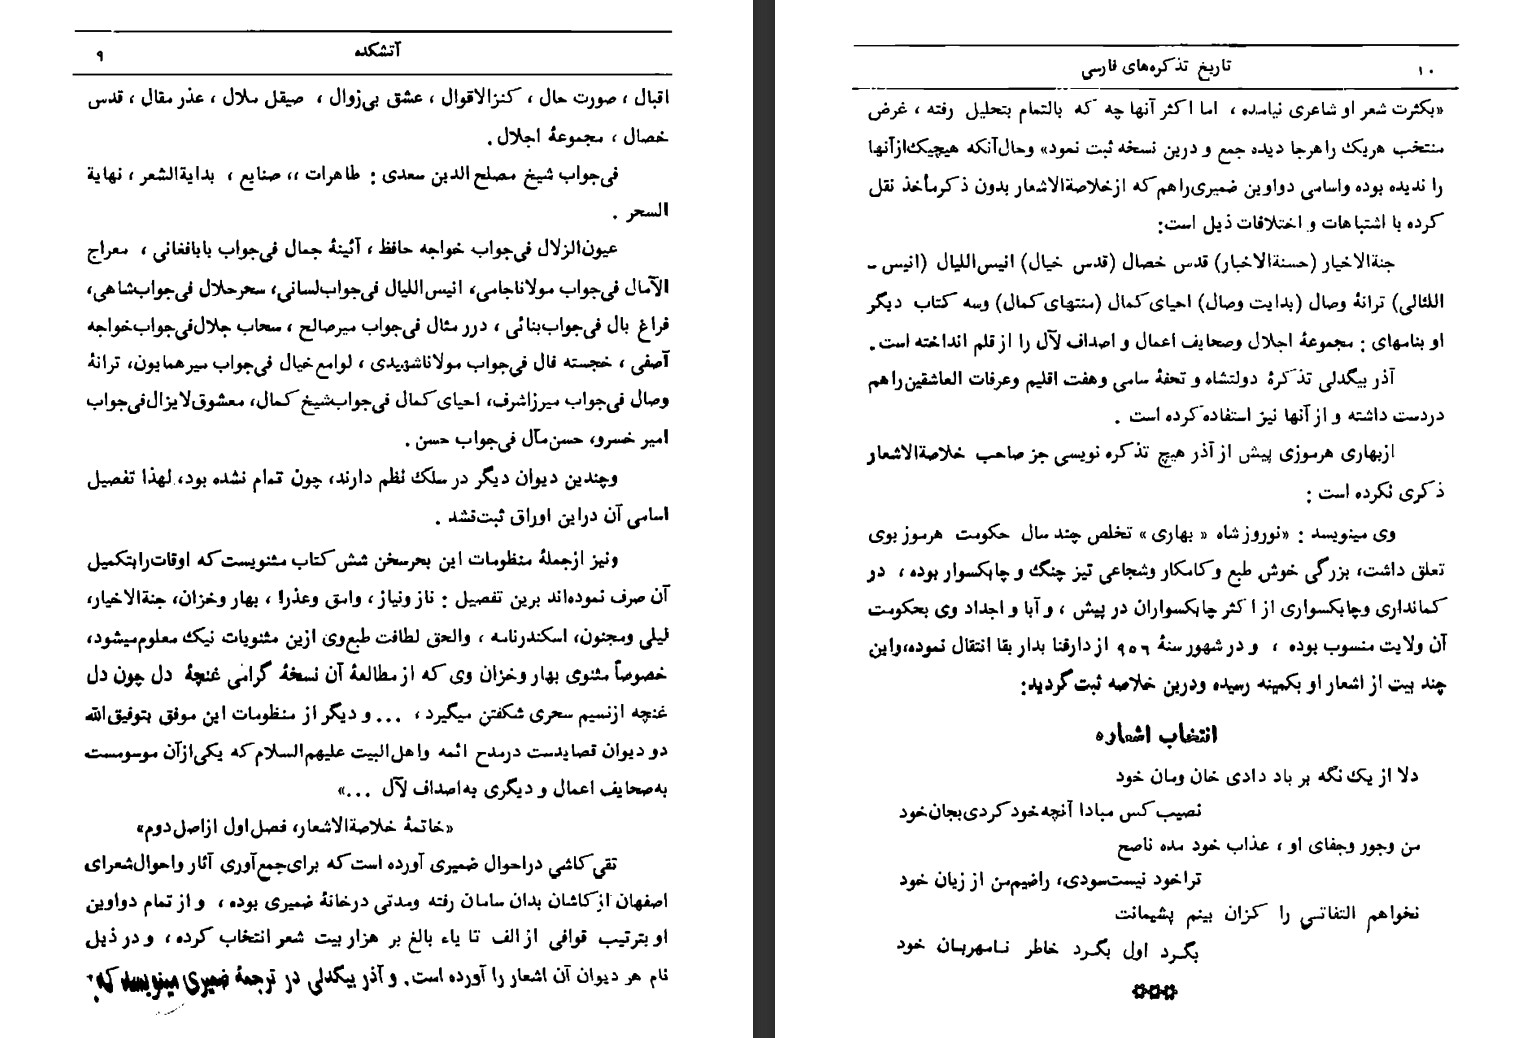 آتشکده
۹
اقبال ، صورت حال ، کنزالاقوال ، عشق بی‌زوال ، صیقل ملال ، عذر مقال ، قدس
خصال ، مجموعهٔ اجلال .
فی‌جواب شیخ مصلح الدین سعدی : طاهرات ،، صنایع ، بدایةالشعر ، نهایة
السحر .
عیون‌الزلال فی‌جواب خواجه حافظ ، آئینهٔ جمال فی‌جواب بابافغانی ، معراج
الآمال فی‌جواب مولاناجامی، انیس‌اللیال فی‌جواب‌لسانی، سحرحلال فی‌جواب‌شاهی،
فراغ بال فی‌جواب‌بنائی ، درر مثال فی‌جواب میرصالح ، سحاب جلال‌فی‌جواب‌خواجه
آصفی ، خجسته فال فی‌جواب مولاناشهیدی ، لوامع‌خیال فی‌جواب میرهمایون، ترانهٔ
وصال فی‌جواب میرزاشرف، احیای‌کمال فی‌جواب‌شیخ‌کمال، معشوق‌لایزال‌فی‌جواب
امیر خسرو، حسن‌مآل فی‌جواب حسن .
وچندین دیوان دیگر در سلک نظم دارند، چون تمام نشده بود، لهذا تفصیل
اسامی آن دراین اوراق ثبت‌نشد .
ونیز ازجملهٔ منظومات این بحرسخن شش کتاب مثنویست‌که اوقات‌رابتکمیل
آن صرف نموده‌اند برین تفصیل : ناز ونیاز ، وامق وعذرا ، بهار وخزان، جنةالاخیار،
لیلی ومجنون، اسکندرنامه ، والحق لطافت طبع‌وی ازین مثنویات نیک معلوم‌میشود،
خصوصاً مثنوی بهار وخزان وی که از مطالعهٔ آن نسخهٔ گرامی غنچهٔ دل چون دل
غنچه ازنسیم سحری شکفتن میگیرد ، ... و دیگر از منظومات این موفق بتوفیق‌الله
دو دیوان قصایدست درمدح ائمه واهل‌البیت علیهم‌السلام‌که یکی‌ازآن موسومست
به‌صحایف اعمال و دیگری به‌اصداف لآل ...»
«خاتمهٔ خلاصةالاشعار، فصل‌اول ازاصل‌دوم»
تقی‌کاشی دراحوال ضمیری آورده است‌که برای‌جمع‌آوری آثار واحوال‌شعرای
اصفهان ازکاشان بدان سامان رفته ومدتی درخانهٔ ضمیری بوده ، و از تمام دواوین
او بترتیب قوافی از الف تا یاء بالغ بر هزار بیت شعر انتخاب کرده ، و در ذیل
نام هر دیوان آن اشعار را آورده است. و آذر بیگدلی در ترجمهٔ ضمیری مینویسد که:
تاریخ تذکره‌های فارسی
۱۰
«بکثرت شعر او شاعری نیامده ، اما اکثر آنها چه که بالتمام بتحلیل رفته ، غرض
منتخب هریک راهرجا دیده جمع و درین نسخه ثبت نمود» وحال‌آنکه هیچیک‌ازآنها
را ندیده بوده واسامی دواوین ضمیری‌راهم‌که ازخلاصةالاشعار بدون ذکرمأخذ نقل
کرده با اشتباهات و اختلافات ذیل است:
جنةالاخیار (حسنةالاخبار) قدس خصال (قدس خیال) انیس‌اللیال (انیس ـ
اللئالی) ترانهٔ وصال (بدایت وصال) احیای‌کمال (منتهای‌کمال) وسه کتاب دیگر
او بنامهای : مجموعهٔ اجلال وصحایف اعمال و اصداف لآل را از قلم انداخته است.
آذر بیگدلی تذکرهٔ دولتشاه و تحفهٔ سامی وهفت اقلیم وعرفات العاشقین‌راهم
دردست داشته و از آنها نیز استفاده‌کرده است .
ازبهاری هرموزی پیش از آذر هیچ تذکره نویسی جز صاحب خلاصةالاشعار
ذکری نکرده است :
وی مینویسد : «نوروز شاه « بهاری» تخلص چند سال حکومت هرموز بوی
تعلق داشت، بزرگی خوش طبع وکامکار وشجاعی تیز چنگ و چابکسوار بوده ، در
کمانداری وچابکسواری از اکثر چابکسواران در پیش ، و آبا و اجداد وی بحکومت
آن ولایت منسوب بوده ، و در شهور سنهٔ ۹۵۶ از دارفنا بدار بقا انتقال نموده،واین
چند بیت از اشعار او بکمینه رسیده ودرین خلاصه ثبت‌گردید:
انتخاب اشعاره
دلا از یک نگه بر باد دادی خان ومان خود
نصیب‌کس مبادا آنچه‌خودکردی‌بجان‌خود
من وجور وجفای او ، عذاب خود مده ناصح
تراخود نیست‌سودی، راضیم‌من از زیان خود
نخواهم التفاتی را کزان بینم پشیمانت
بگرد اول بگرد خاطر نامهربان خود
✿✿✿